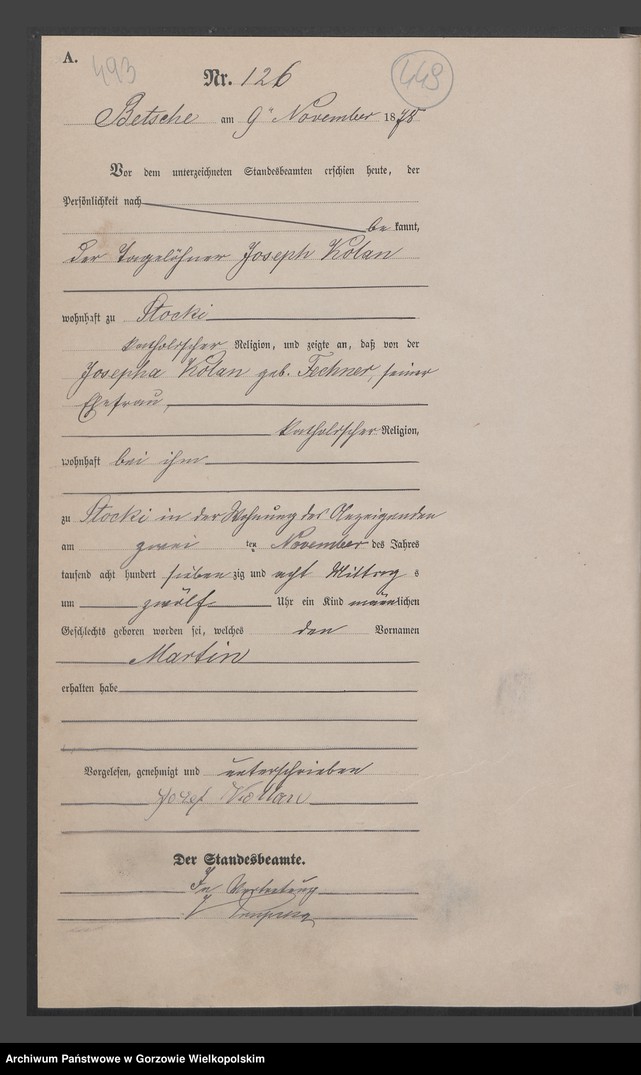 A.
493
449
Nr. 126
Betsche am 9n November 1878
Vor dem unterzeichneten Standesbeamten erschien heute, der
Persönlichkeit nach
be kannt,
der Tagelöhner Joseph Kolan
wohnhaft zu Stocki
katholischer Religion, und zeigte an, daß von der
Josepha Kolan geb. Fechner, seiner
Ehefrau,
katholischer Religion,
wohnhaft bei ihm
zu Stocki in der Wohnung des Anzeigenden
am zwei ten November des Jahres
tausend acht hundert sieben zig und acht Mittag s
um zwölf Uhr ein Kind männlichen
Geschlechts geboren worden sei, welches den Vornamen
Martin
erhalten habe
Vorgelesen, genehmigt und unterschrieben
Josef Kollan
Der Standesbeamte.
In Vertretung
Archiwum Państwowe w Gorzowie Wielkopolskim